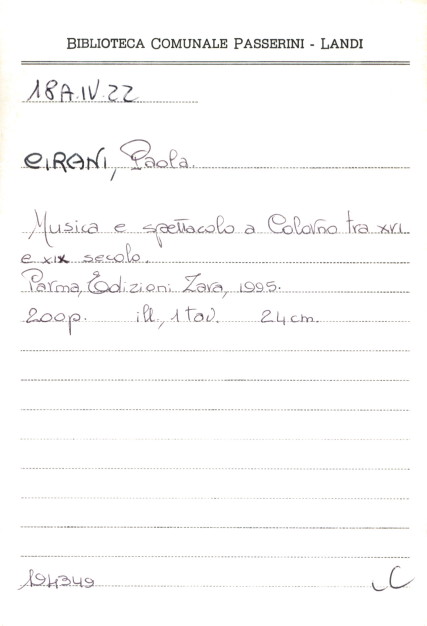 BIBLIOTECA COMUNALE PASSERINI - LANDI
18A.IV.22
CIRANI, Paola.
Musica e spettacolo a Colorno tra XVI
e XIX secolo.
Parma, Edizioni Zara, 1995.
200p. ill., 1 tav. 24 cm.
194349
C